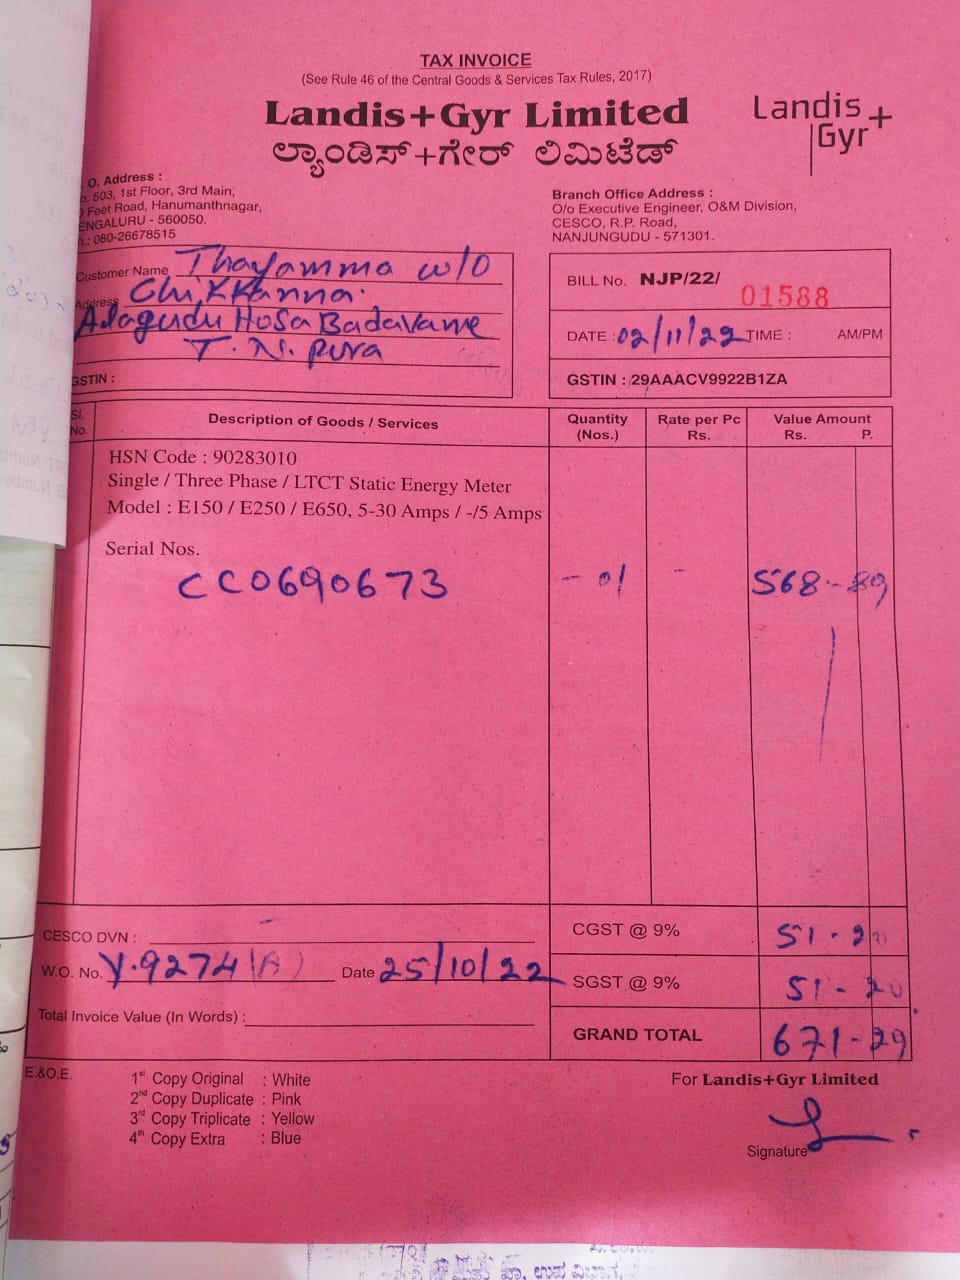 TAX INVOICE
(See Rule 46 of the Central Goods & Services Tax Rules, 2017)
Landis+Gyr Limited
ಲ್ಯಾಂಡಿಸ್+ಗೇರ್ ಲಿಮಿಟೆಡ್
Landis+
Gyr
O. Address :
503, 1st Floor, 3rd Main,
Feet Road, Hanumanthnagar,
ENGALURU - 560050.
080-26678515
Branch Office Address :
O/o Executive Engineer, O&M Division,
CESCO, R.P. Road,
NANJUNGUDU - 571301.
Customer Name Thayamma w/o
Address Chikkanna.
Alagudu Hosa Badavane
T.N.pura
GSTIN :
BILL No. NJP/22/ 01588
DATE : 02/11/22 TIME : AM/PM
GSTIN : 29AAACV9922B1ZA
Sl. No. Description of Goods / Services Quantity (Nos.) Rate per Pc Rs. Value Amount Rs. P.
HSN Code : 90283010
Single / Three Phase / LTCT Static Energy Meter
Model : E150 / E250 / E650, 5-30 Amps / -/5 Amps
Serial Nos.
CC0690673 - 01 - 568-89
CESCO DVN : -
CGST @ 9% 51-20
W.O. No. Y.9274(A) Date 25/10/22
SGST @ 9% 51-20
Total Invoice Value (In Words) :
GRAND TOTAL 671-29
E.&O.E.
1st Copy Original : White
2nd Copy Duplicate : Pink
3rd Copy Triplicate : Yellow
4th Copy Extra : Blue
For Landis+Gyr Limited
Signature